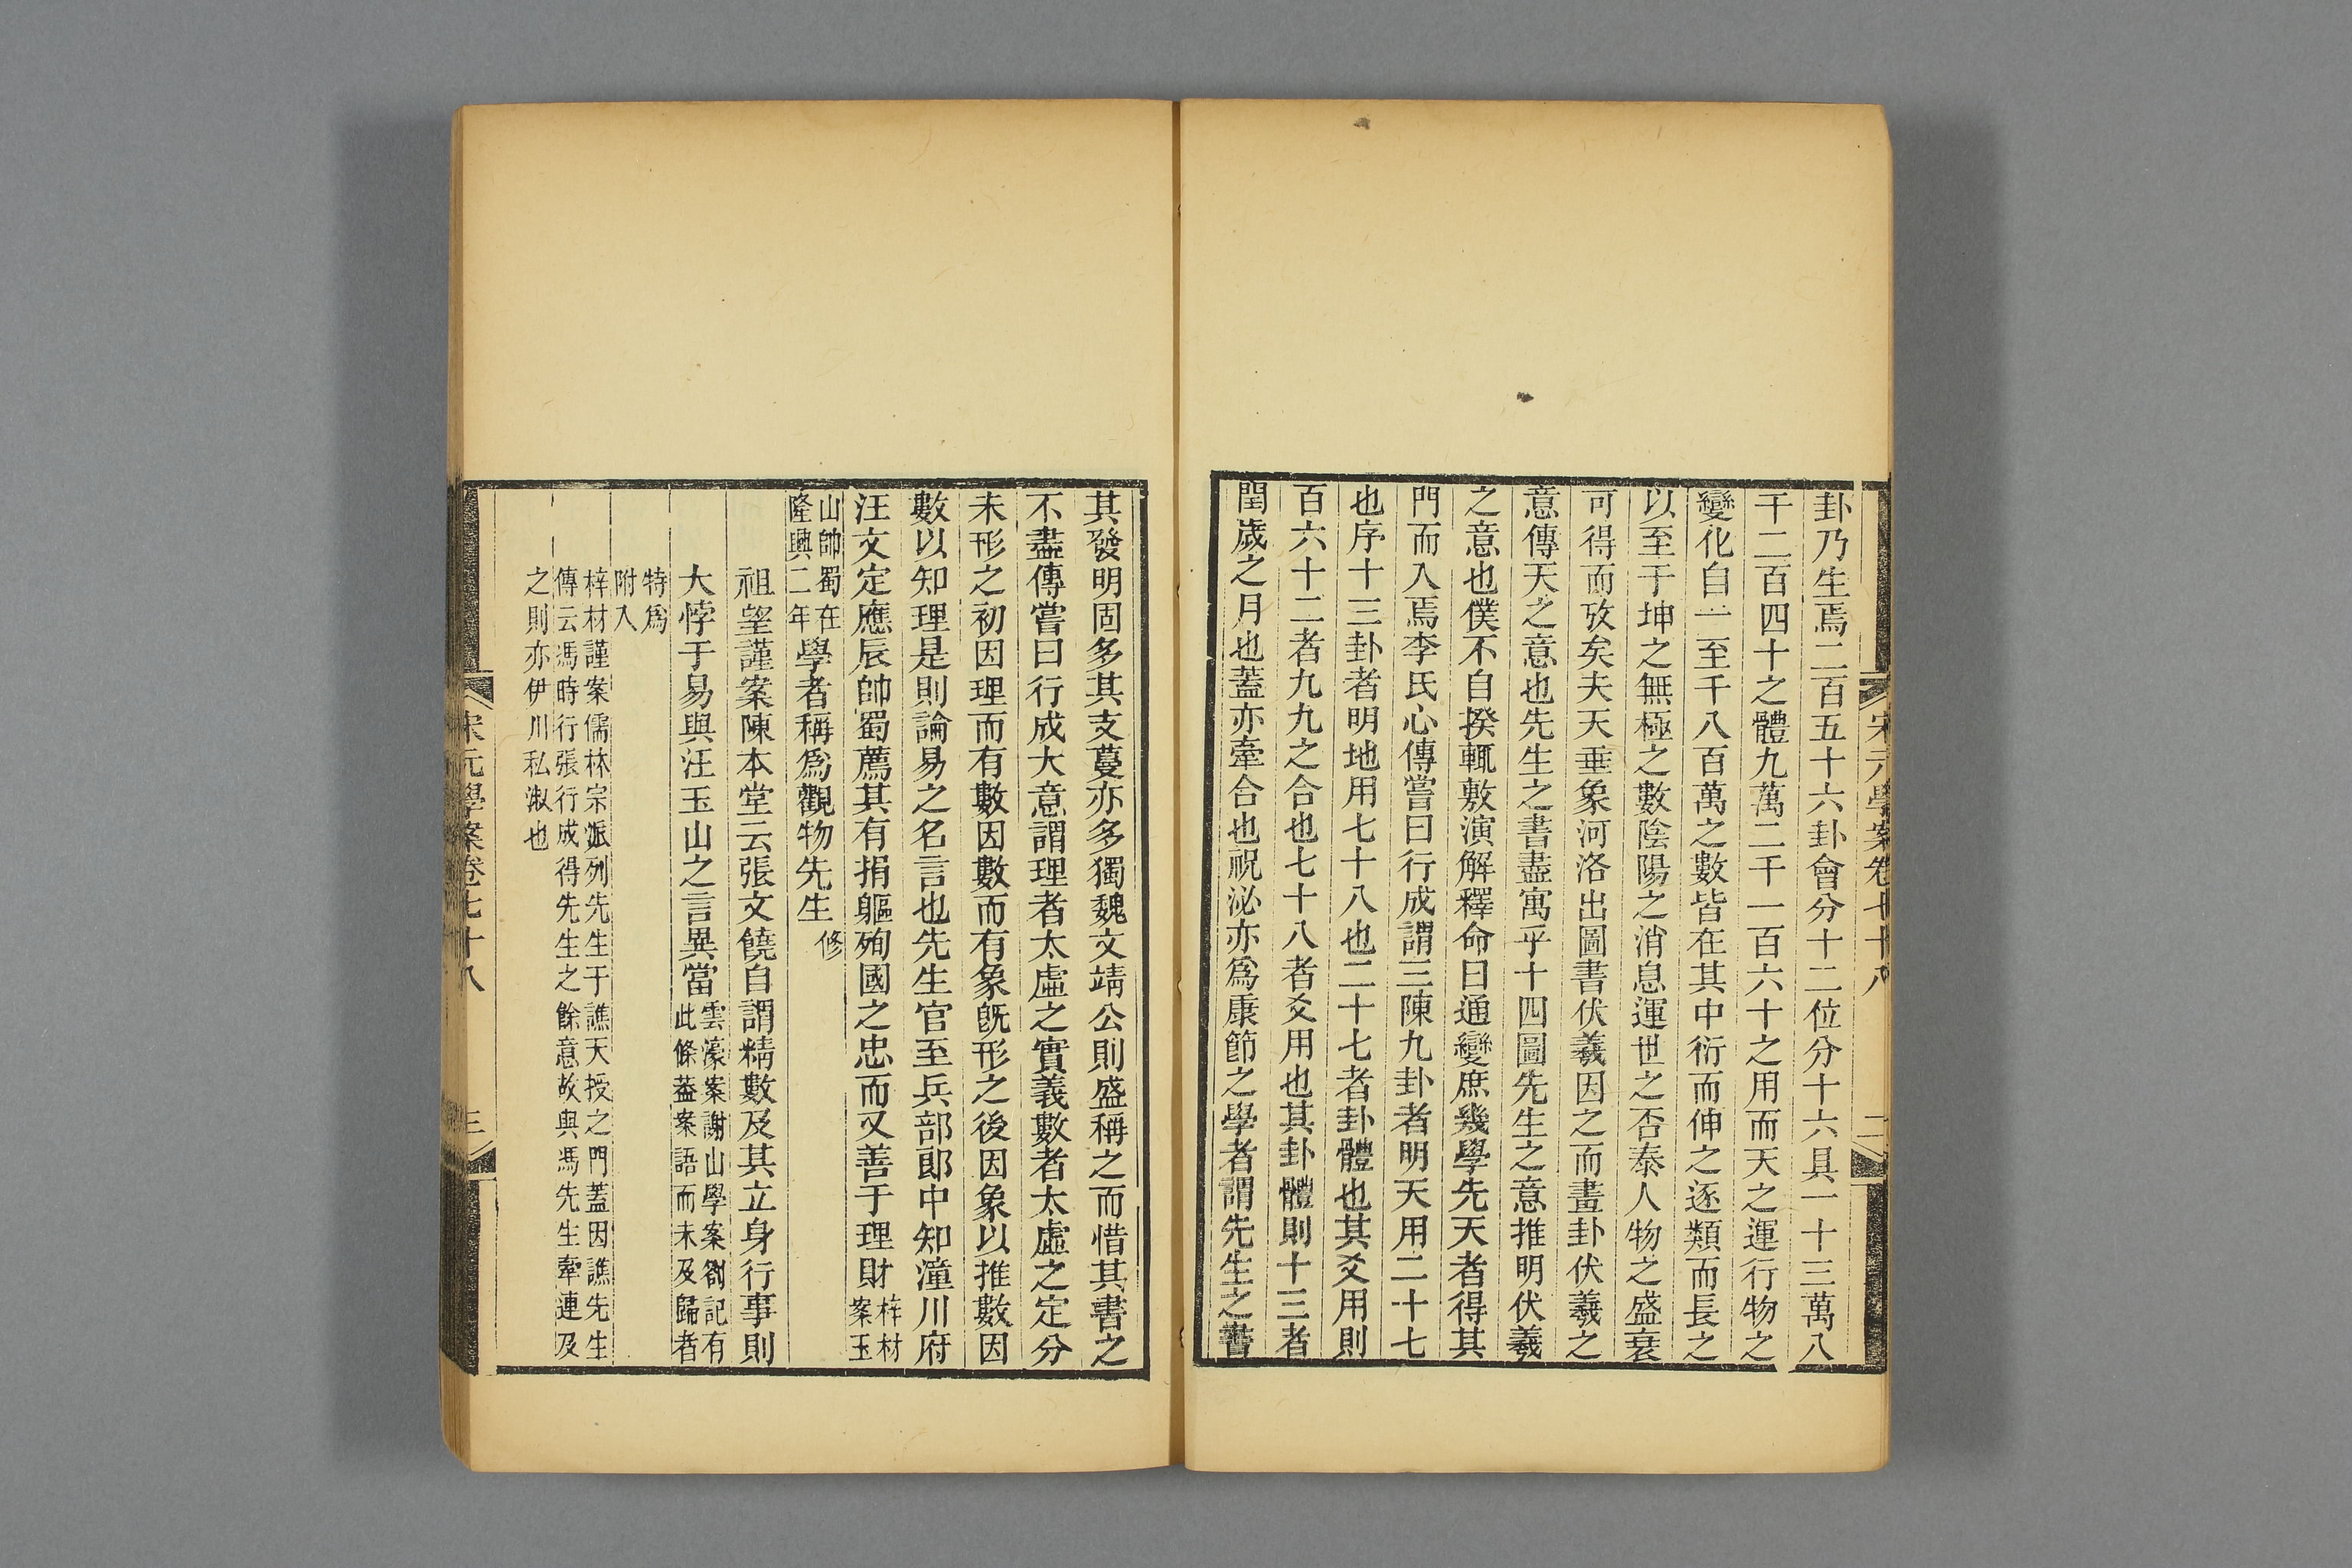 宋元學案卷七十八
二
卦乃生焉二百五十六卦會分十二位分十六具一十三萬八
千二百四十之體九萬二千一百六十之用而天之運行物之
變化自一至千八百萬之數皆在其中衍而伸之逐類而長之
以至于坤之無極之數陰陽之消息運世之否泰人物之盛衰
可得而攷矣夫天垂象河洛出圖書伏羲因之而畫卦伏羲之
意傳天之意也先生之書盡寓乎十四圖先生之意推明伏羲
之意也僕不自揆輒敷演解釋命曰通變庶幾學先天者得其
門而入焉李氏心傳嘗曰行成謂三陳九卦者明天用二十七
也序十三卦者明地用七十八也二十七者卦體也其爻用則
百六十二者九九之合也七十八者爻用也其卦體則十三者
閏歲之月也蓋亦牽合也祝泌亦爲康節之學者謂先生之書
其發明固多其支蔓亦多獨魏文靖公則盛稱之而惜其書之
不盡傳嘗曰行成大意謂理者太虛之實義數者太虛之定分
未形之初因理而有數因數而有象旣形之後因象以推數因
數以知理是則論易之名言也先生官至兵部郎中知潼川府
汪文定應辰帥蜀薦其有捐軀殉國之忠而又善于理財梓材案玉
山帥蜀在隆興二年學者稱爲觀物先生修
祖望謹案陳本堂云張文饒自謂精數及其立身行事則
大悖于易與汪玉山之言異當雲濠案謝山學案劄記有此條蓋案語而未及歸者
特爲附入
梓材謹案儒林宗派列先生于譙天授之門蓋因譙先生
傳云馮時行張行成得先生之餘意故與馮先生牽連及
之則亦伊川私淑也
宋元學案卷七十八
三